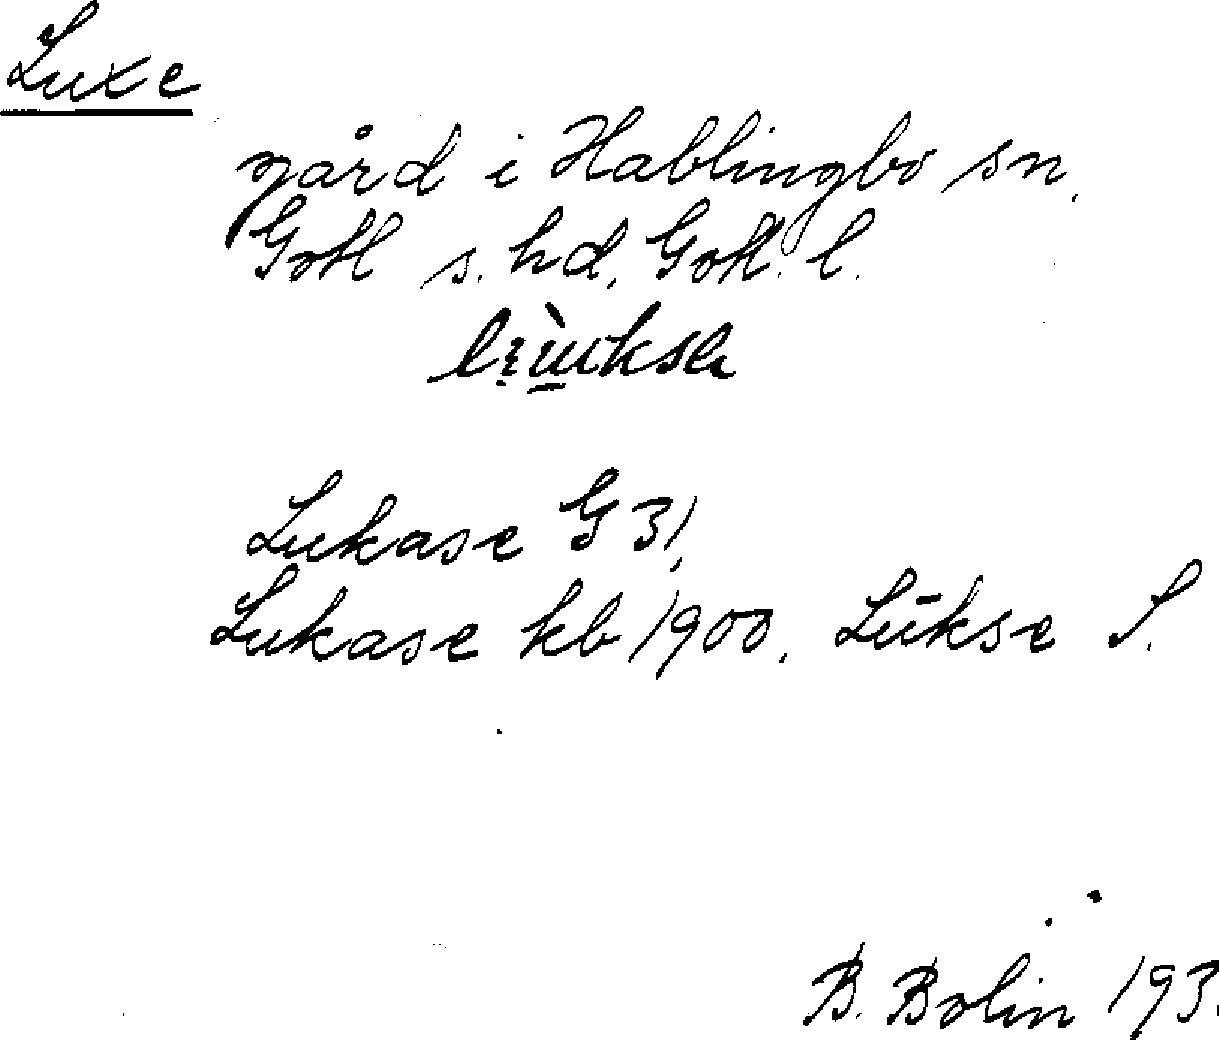 Luxe
gård i Hablingbo sn.
Gotl s. hd, Gotl. l.
Lukase G 31,
Lukase kb 1900. Lūkse S.
B. Bolin 193